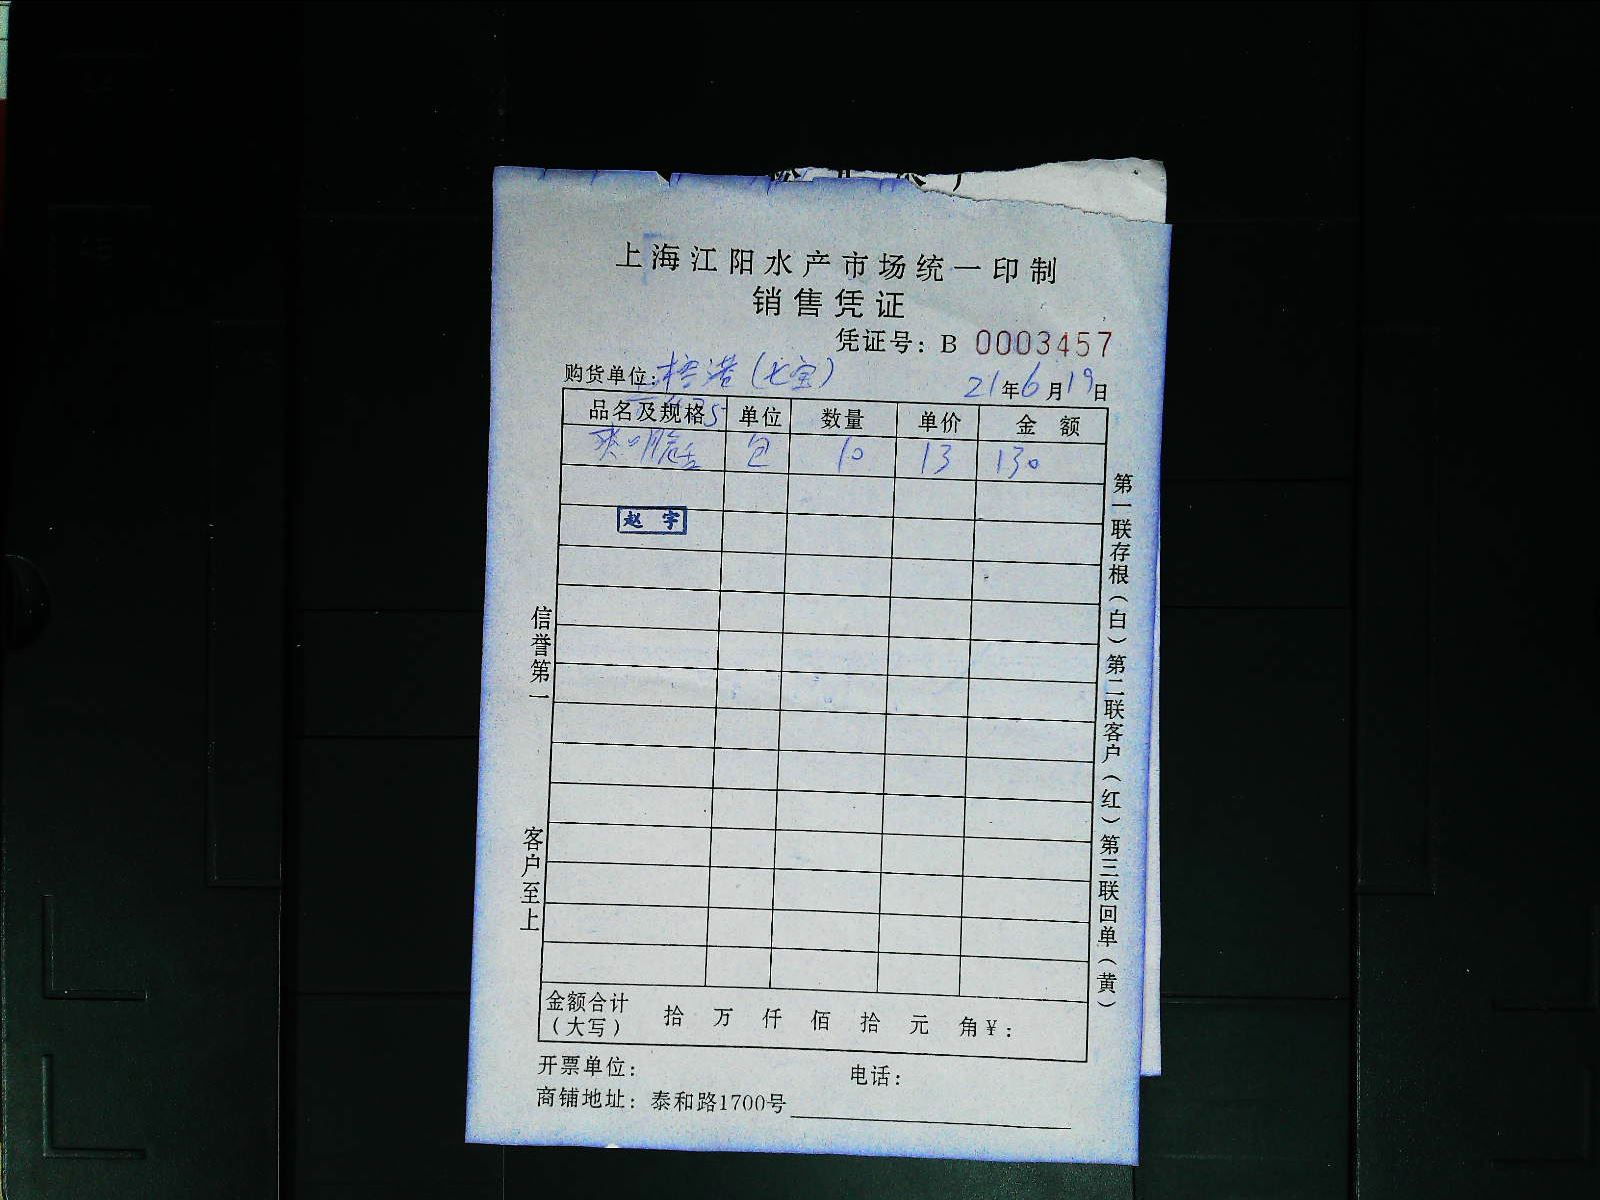 上海江阳水产市场统一印制
销售凭证
凭证号：B 0003457
购货单位：梧港（七宝）
21年6月19日
品名及规格 单位 数量 单价 金额
爽口脆舌 包 10 13 130
赵宇
信誉第一
客户至上
第一联存根（白）第二联客户（红）第三联回单（黄）
金额合计（大写） 拾 万 仟 佰 拾 元 角￥：
开票单位： 电话：
商铺地址：泰和路1700号